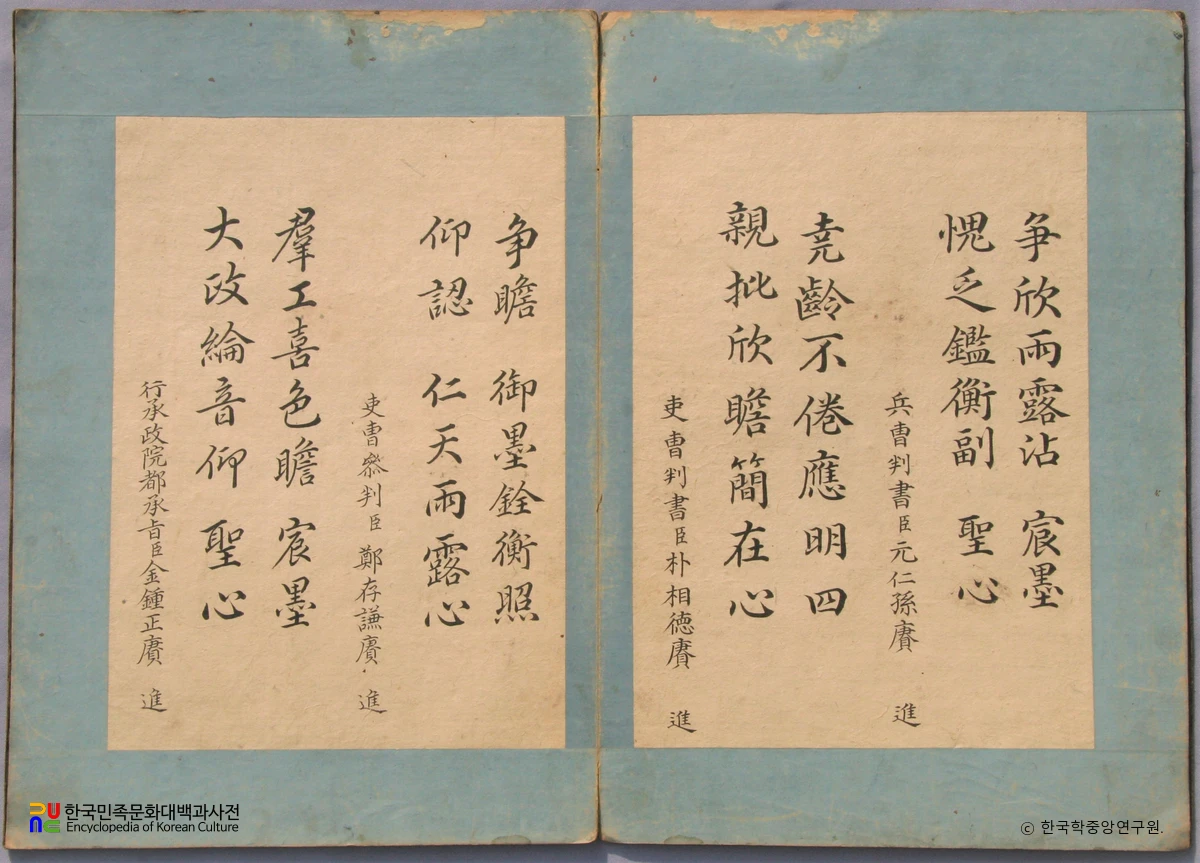 爭欣雨露沾 宸墨
愧乏鑑衡副 聖心
兵曹判書臣元仁孫賡 進
堯齡不倦應明四
親批欣瞻簡在心
吏曹判書臣朴相德賡 進
争瞻 御墨銓衡照
仰認 仁天雨露心
吏曹叅判臣鄭存謙賡 進
羣工喜色瞻 宸墨
大政綸音仰 聖心
行承政院都承旨臣金鍾正賡 進
한국민족문화대백과사전
Encyclopedia of Korean Culture
© 한국학중앙연구원.